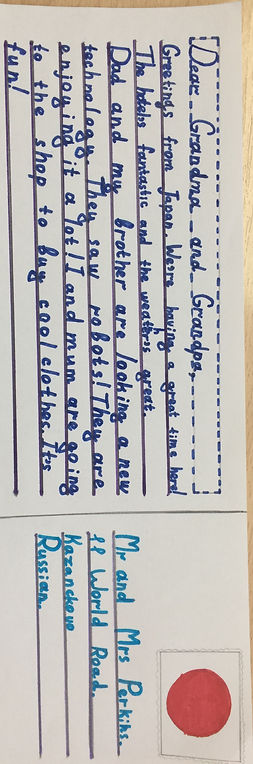 Dear Grandma and Grandpa,
Greetings from Japan. We're having a great time here!
The hotels fantastic and the weathers great.
Dad and my brother are looking a new
technology. They saw robots! They are
enjoying it a lot! I and mum are going
to the shop to buy cool clothes. Its
fun!
Mr and Mrs Perkins.
11 World Road.
Kazanckove
Russian.